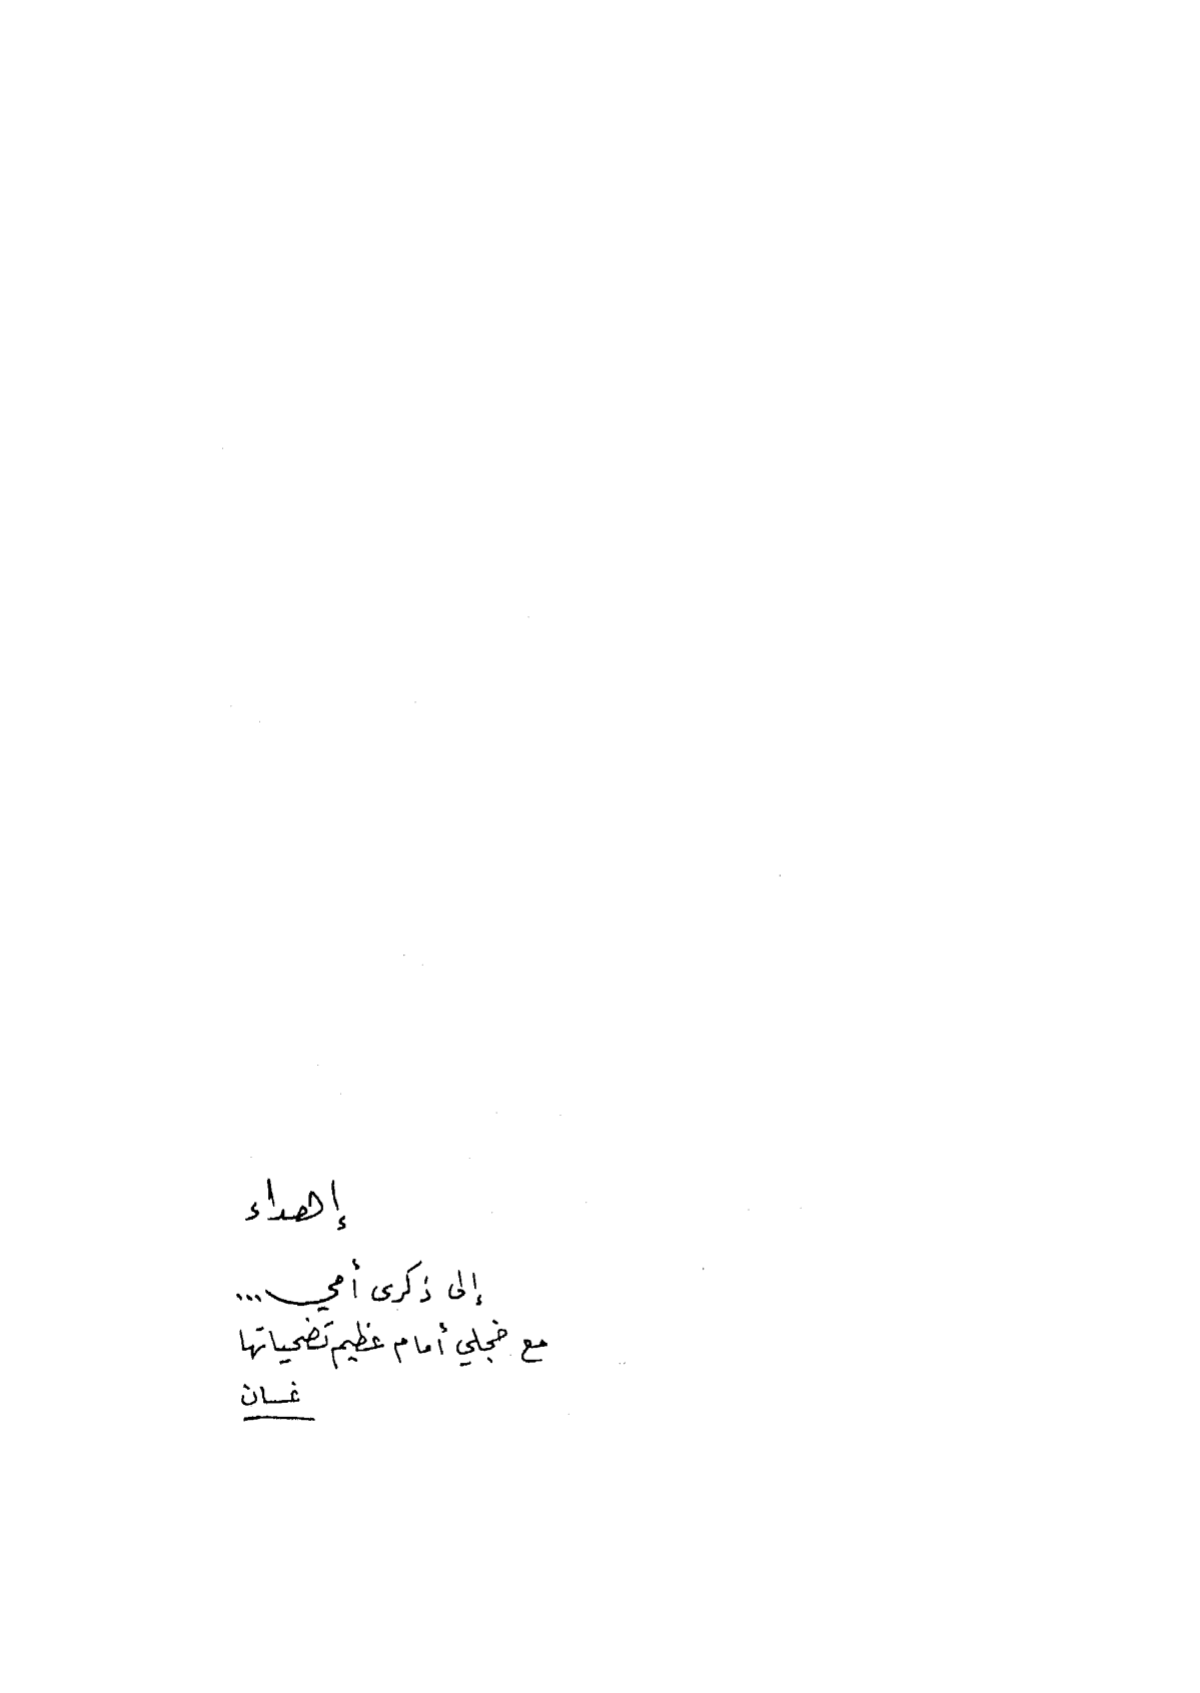 إهداء
إلى ذكرى أمي...
مع خجلي أمام عظيم تضحياتها
غسان